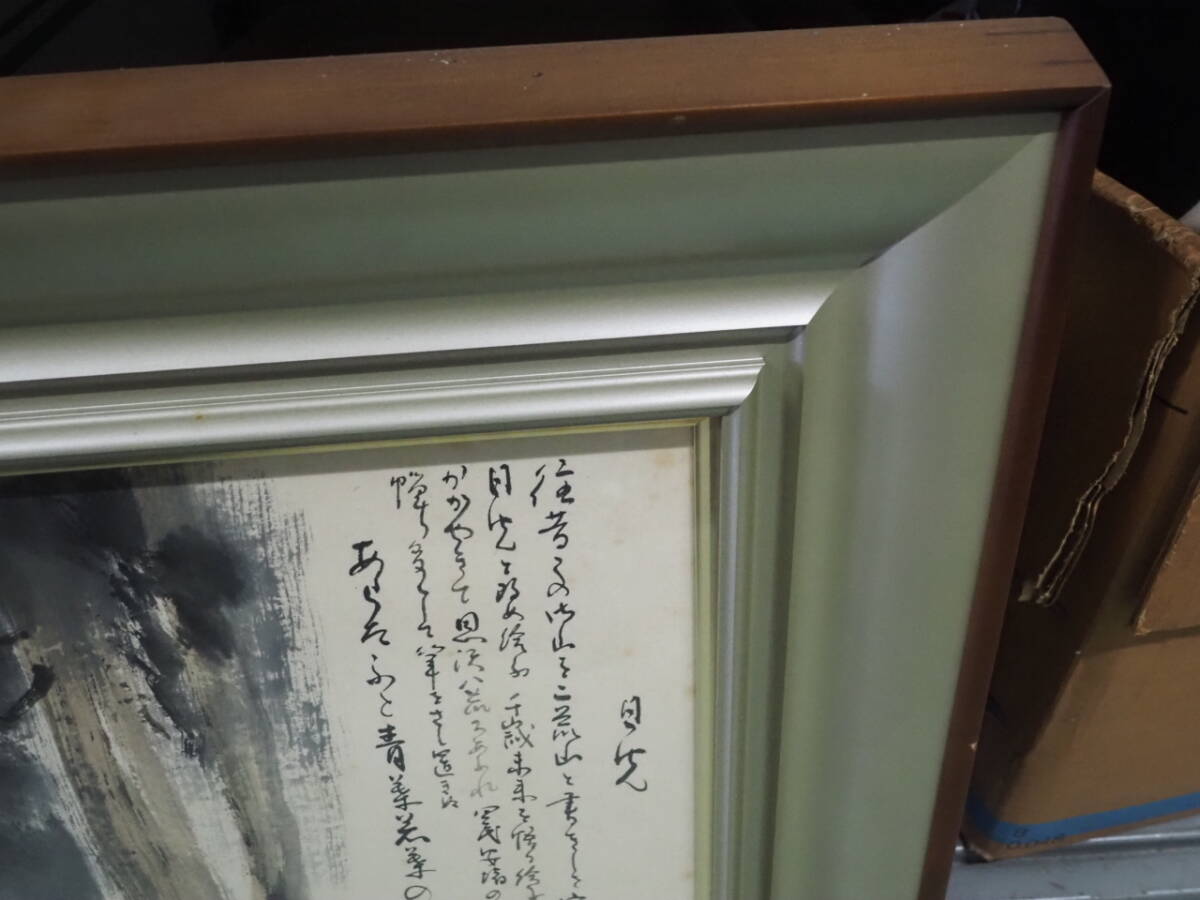 日光
往昔この御山を二荒山と書きしを
日光と改め給ふ千歳未来を悟り給
かかやきて恩沢八荒にあふれ四民安堵の
憚多くして筆をさし置ぬ
あらたふと青葉若葉の